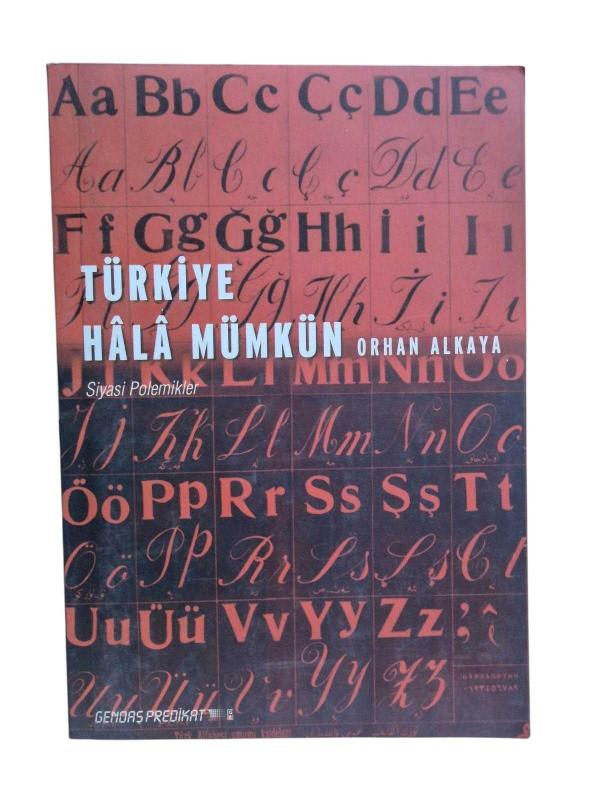 Aa Bb Cc Çç Dd Ee
Aa Bb Cc Çç Dd Ee
Ff Gg Ğğ Hh İi Iı
Ff Gg Ğğ Hh İi Iı
TÜRKİYE
HÂLÂ MÜMKÜN ORHAN ALKAYA
Siyasi Polemikler
Jj Kk Ll Mm Nn Oo
Jj Kk Ll Mm Nn Oo
Öö Pp Rr Ss Şş Tt
Öö Pp Rr Ss Şş Tt
Uu Üü Vv Yy Zz ; ^
Uu Üü Vv Yy Zz
GENDAŞ PREDİKAT
Türk Alfabesi umumi kaideleri